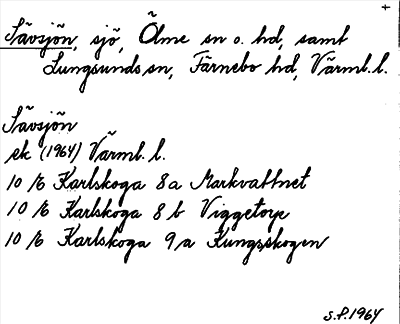 Sävsjön, sjö, Ölme sn o. hd, samt
Lungsunds sn, Färnebo hd, Värml. l.
Sävsjön
ek (1964) Värml. l.
10 /6 Karlskoga 8a Markvattnet
10 /6 Karlskoga 8 b Viggetorp
10 /6 Karlskoga 9 a Kungsskogen
S.P. 1964